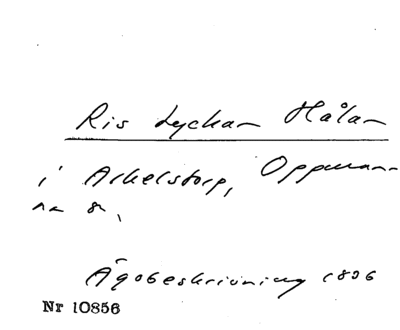 Ris Lyckan Hålan
i Arkelstorp, Oppman-
na sn.
Ägobeskrivning 1806
Nr 10856